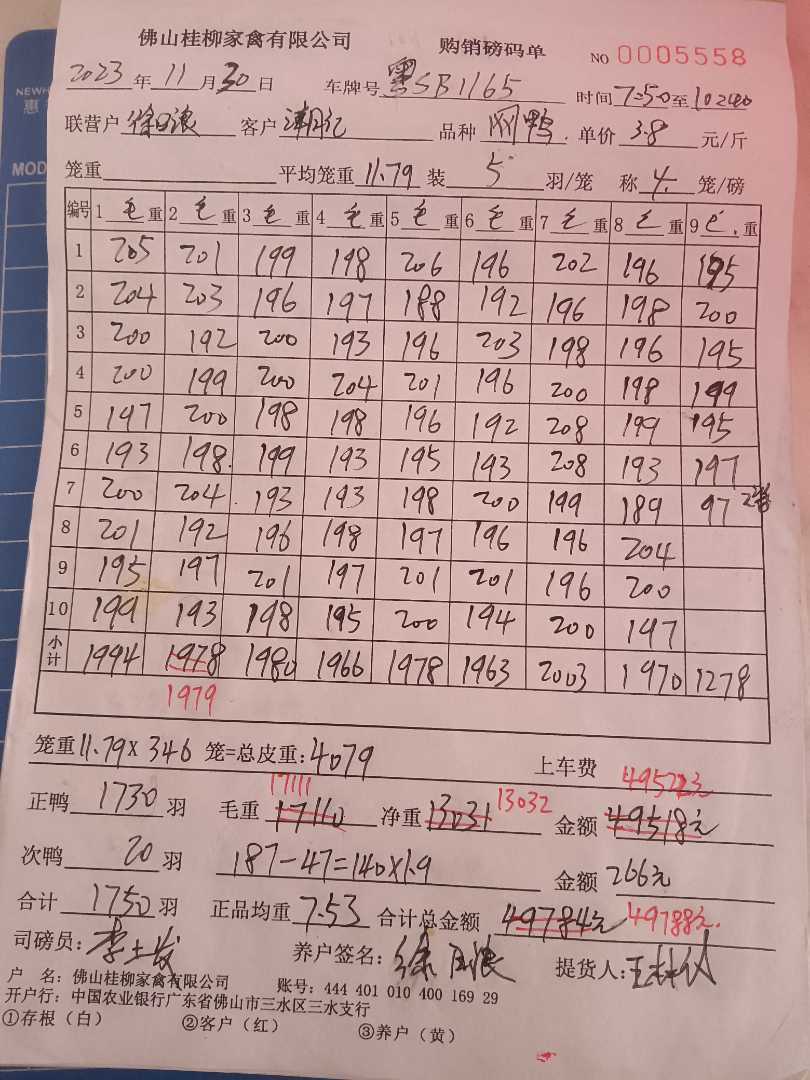 佛山桂柳家禽有限公司 购销磅码单 NO 0005558
2023年11月30日 车牌号 粤SB1165 时间7:50至10:40
联营户 徐 客户 品种 鸭 单价 3.8 元/斤
笼重 平均笼重 11.79 装 5 羽/笼 称 4. 笼/磅
编号 1 毛重 2 毛重 3 毛重 4 毛重 5 毛重 6 毛重 7 毛重 8 毛重 9 毛重
1 205 201 199 198 206 196 202 196 195
2 204 203 196 197 188 192 196 198 200
3 200 192 200 193 196 203 198 196 195
4 200 199 200 204 201 196 200 198 199
5 197 200 198 198 196 192 208 199 195
6 193 198. 199 193 195 193 208 193 197
7 200 204 193 193 198 200 199 189 97
8 201 192 196 198 197 196 196 204
9 195 197 201 197 201 201 196 200
10 199 193 198 195 200 194 200 197
小计 1994 1978 1980 1966 1978 1963 2003 1970 1278
1979
笼重11.79×346 笼=总皮重:4079 上车费
17111 13032 49522元
正鸭 1730 羽 毛重 17110 净重 13031 金额 49518元
次鸭 20 羽 187-47=140×1.9 金额 266元
合计 1750 羽 正品均重 7.53 合计总金额 49784元 49788元.
司磅员: 李土发 养户签名: 徐 提货人:
户 名: 佛山桂柳家禽有限公司 账号: 444 401 010 400 169 29
开户行: 中国农业银行广东省佛山市三水区三水支行
①存根（白） ②客户（红） ③养户（黄）
NEWH
惠
MOD